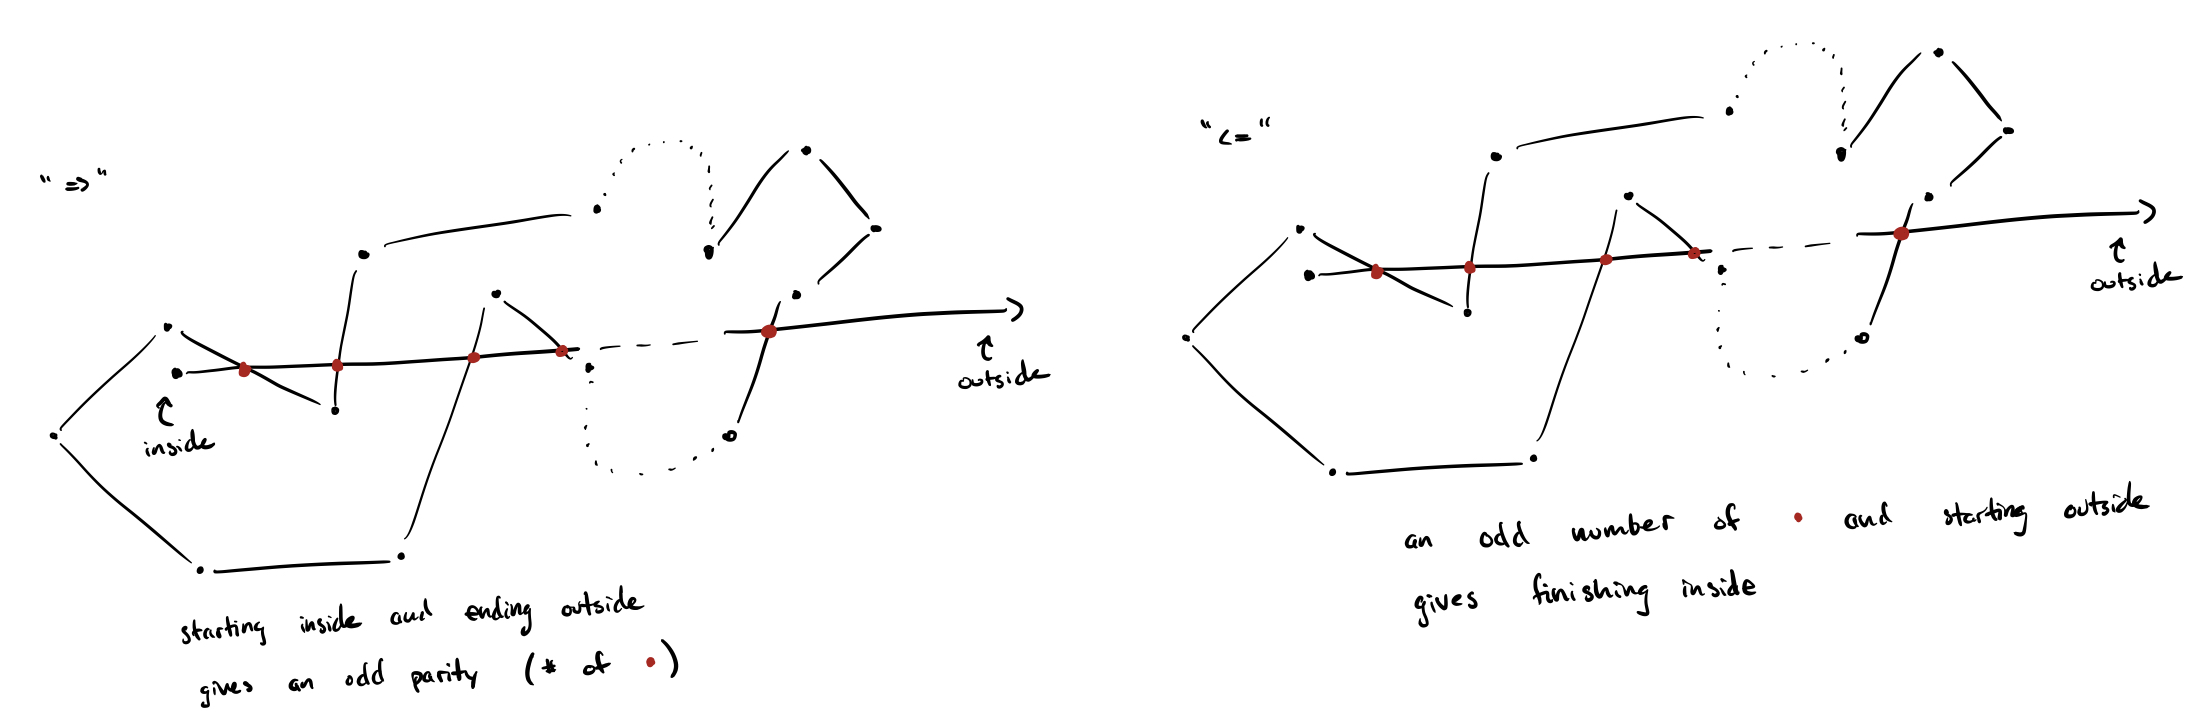 "=>"
inside
outside
starting inside and ending outside
gives an odd parity (# of •)
"<="
outside
an odd number of • and starting outside
gives finishing inside